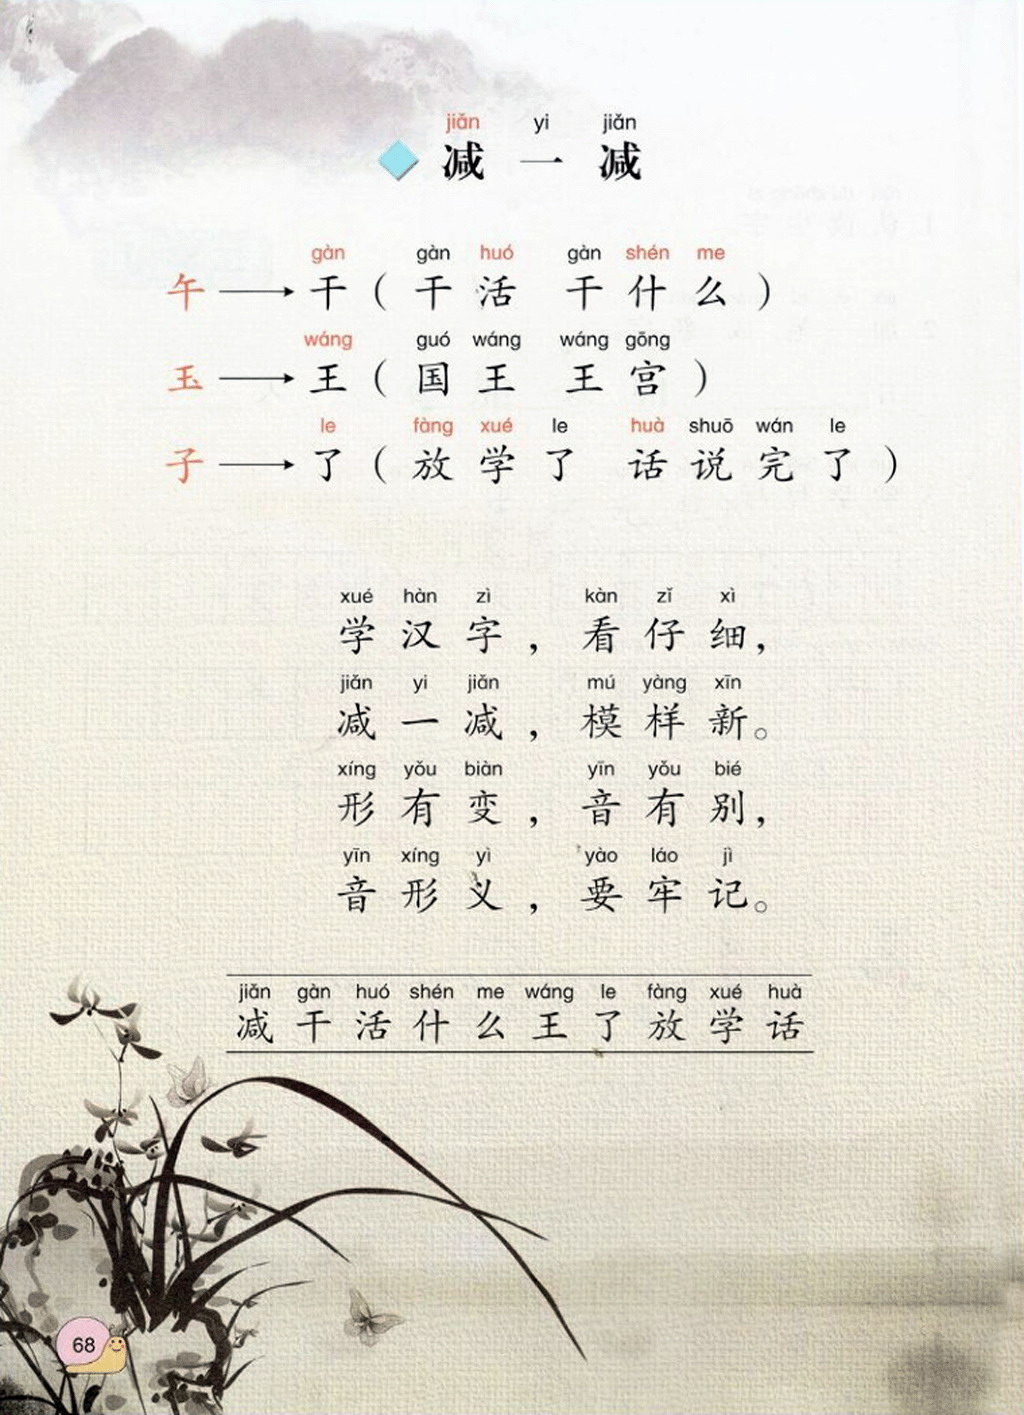 jiǎn yi jiǎn
减一减
gàn gàn huó gàn shén me
午→干（干活 干什么）
wáng guó wáng wáng gōng
玉→王（国王 王宫）
le fàng xué le huà shuō wán le
子→了（放学了 话说完了）
xué hàn zì kàn zǐ xì
学汉字，看仔细，
jiǎn yi jiǎn mú yàng xīn
减一减，模样新。
xíng yǒu biàn yīn yǒu bié
形有变，音有别，
yīn xíng yì yào láo jì
音形义，要牢记。
jiǎn gàn huó shén me wáng le fàng xué huà
减干活什么王了放学话
68